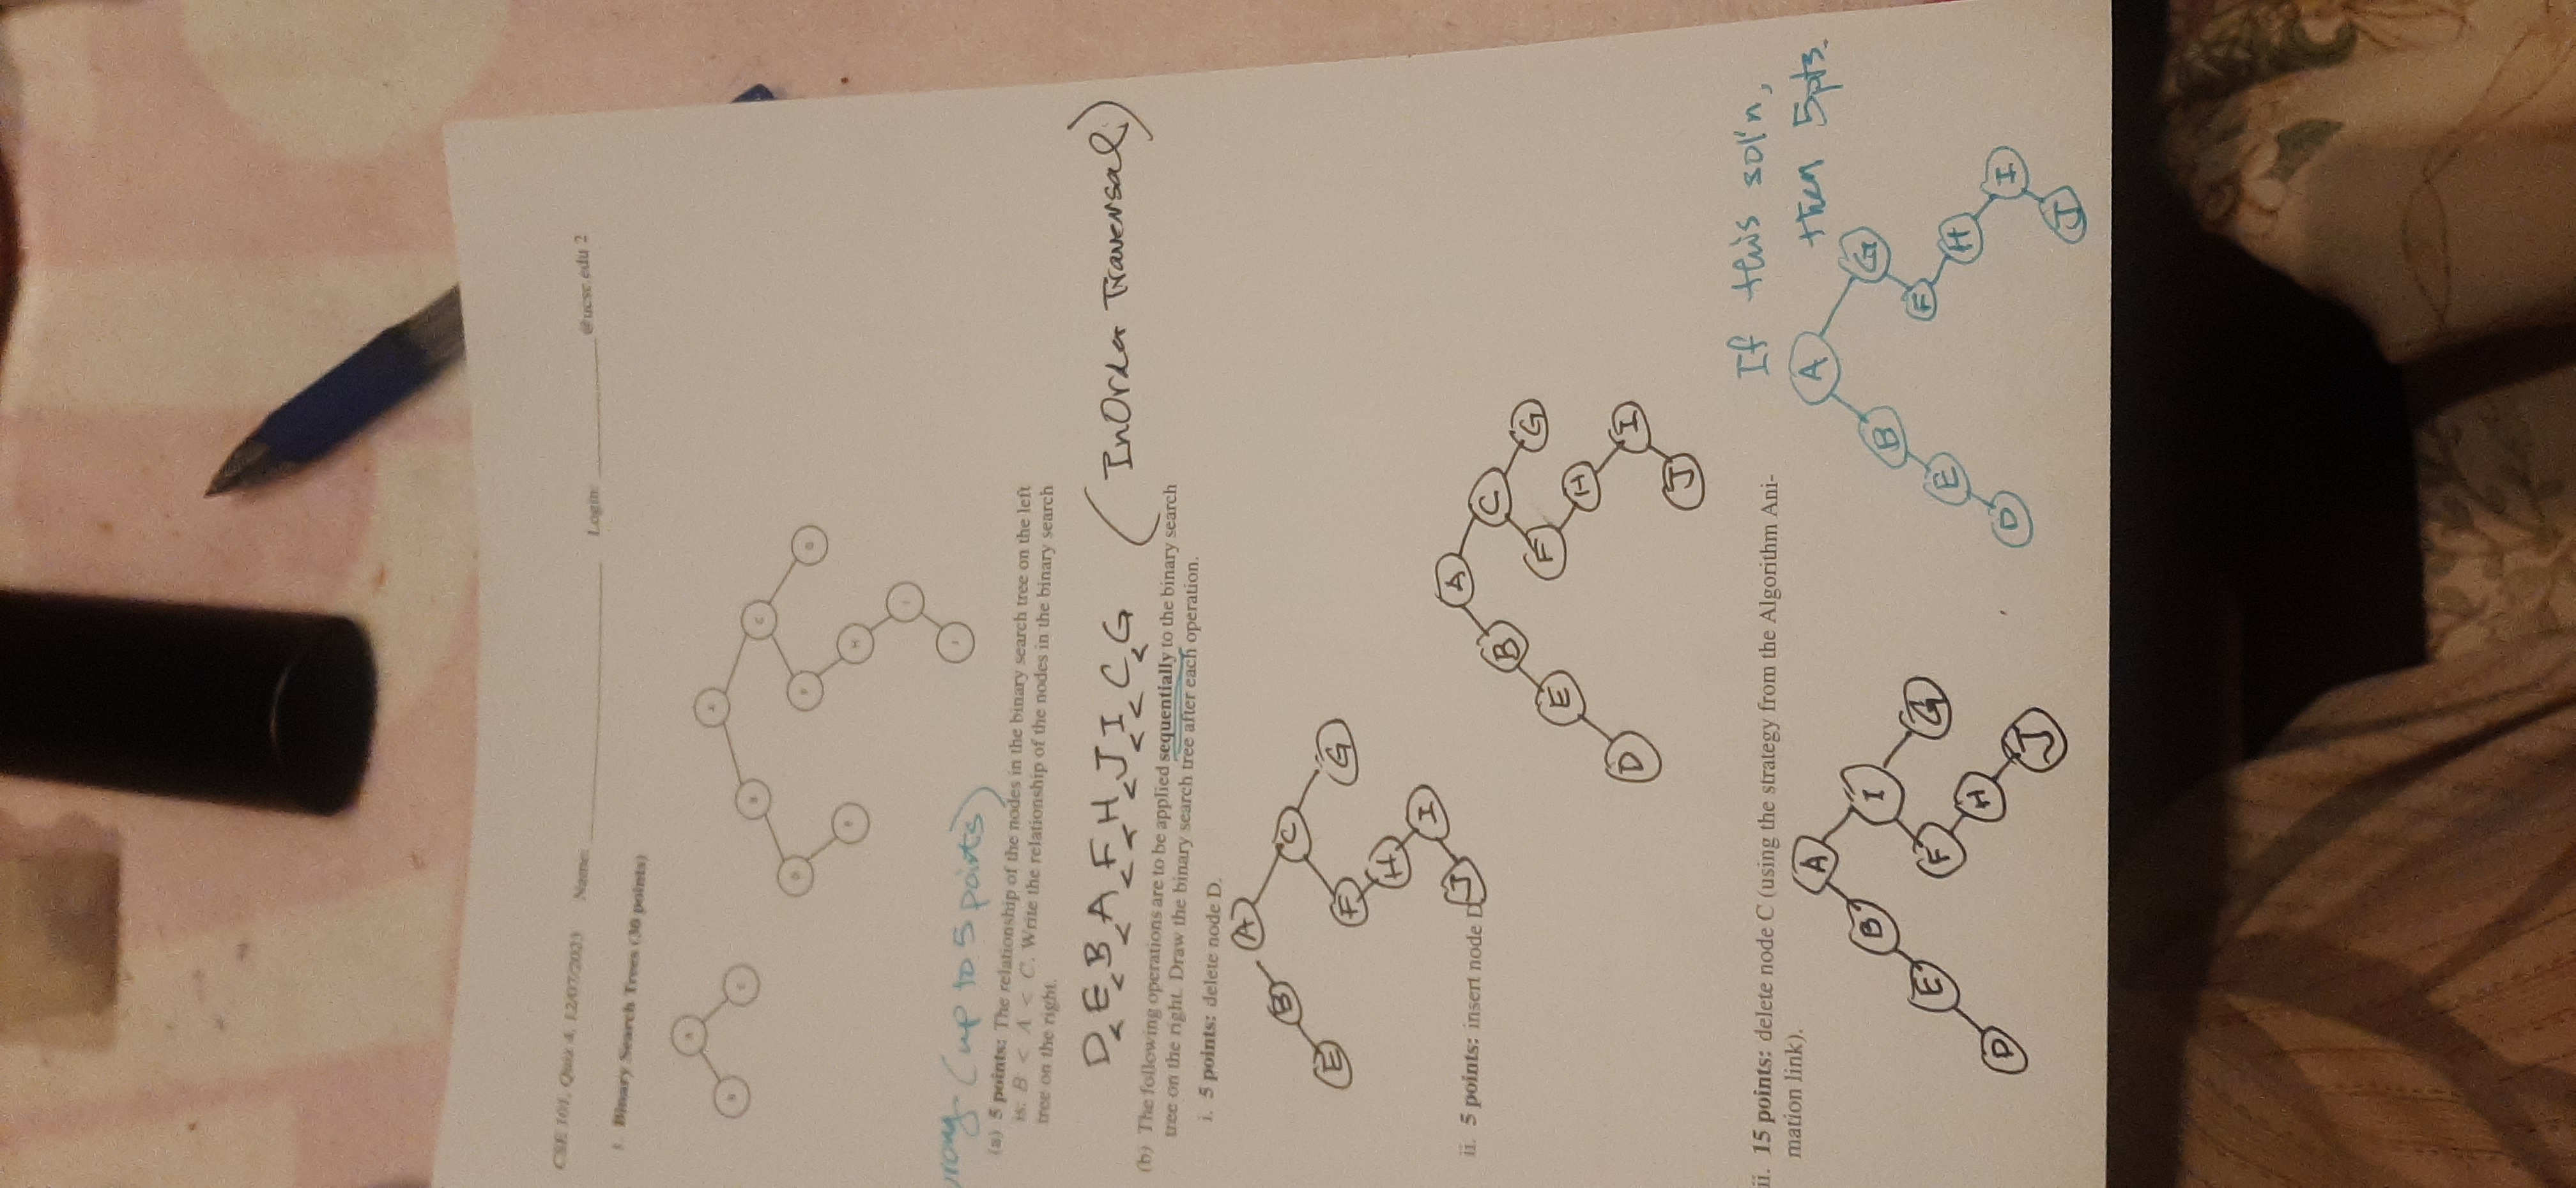 CSE 101, Quiz 4, 12/07/2023 Name: Login: @ucsc.edu 2
1. Binary Search Trees (30 points)
A
B
C
A
B
C
D
F
G
E
H
I
J
(up to 5 points)
(a) 5 points: The relationship of the nodes in the binary search tree on the left
is: B < A < C. Write the relationship of the nodes in the binary search
tree on the right.
D < E < B < A < F < H < J < I < C < G (InOrder Traversal)
(b) The following operations are to be applied sequentially to the binary search
tree on the right. Draw the binary search tree after each operation.
i. 5 points: delete node D.
A
B
C
E
F
G
H
I
J
ii. 5 points: insert node D
A
B
C
E
F
G
D
H
I
J
ii. 15 points: delete node C (using the strategy from the Algorithm Ani-
mation link).
If this sol'n,
then 5pts.
A
B
I
E
F
G
D
H
J
A
B
G
E
F
D
H
I
J